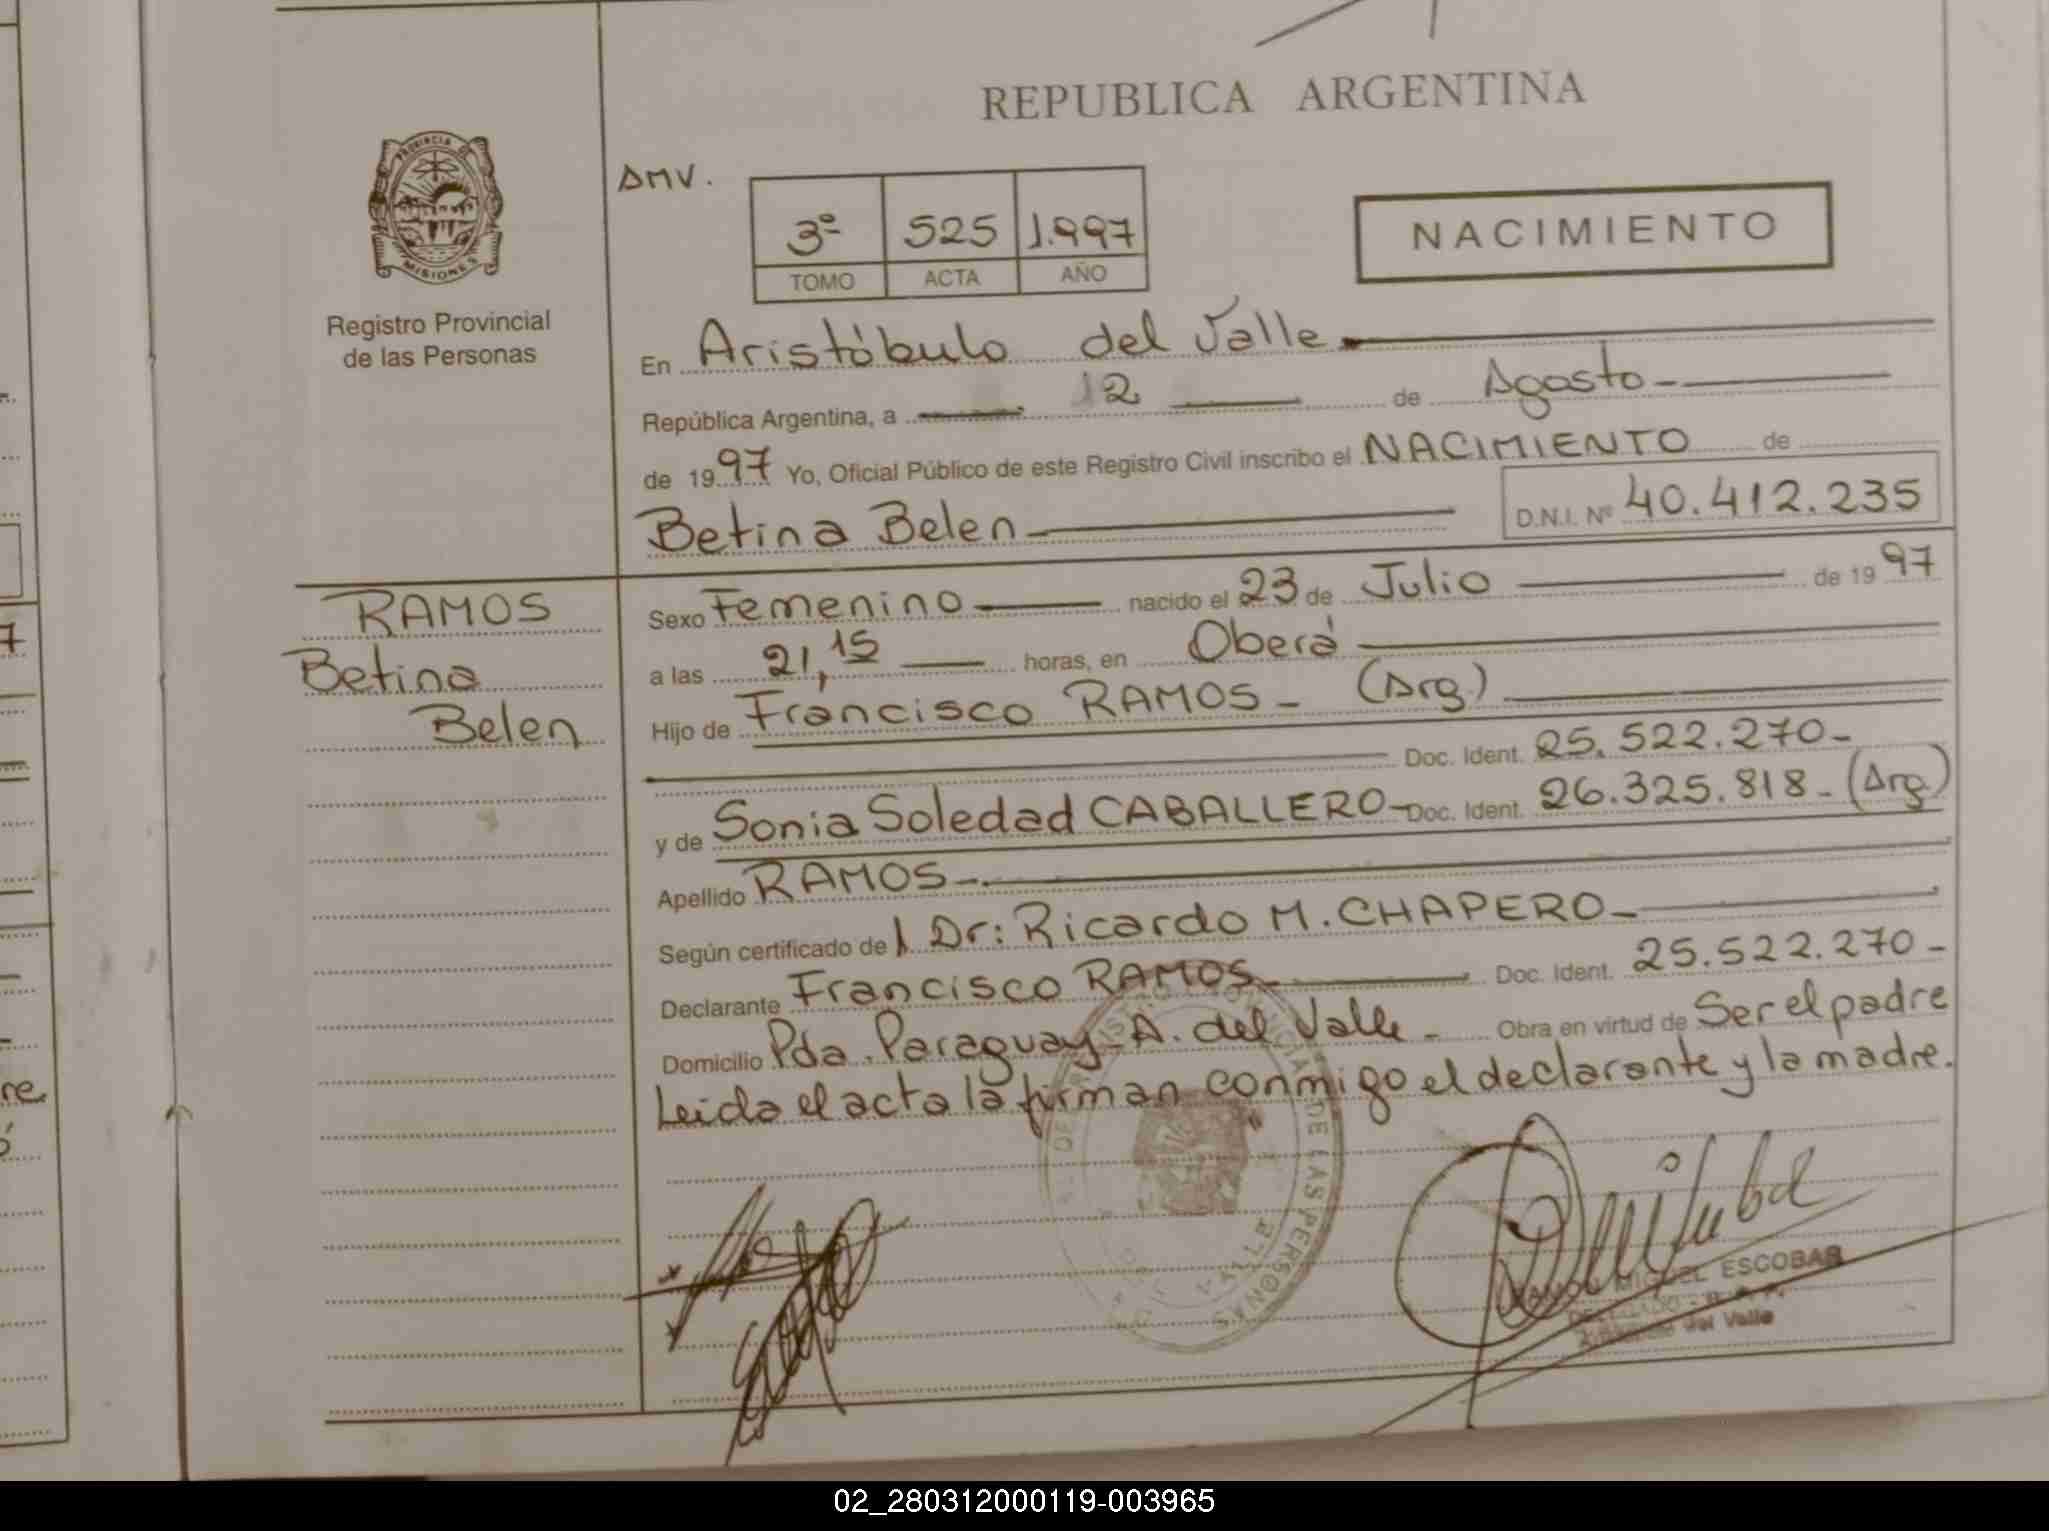 REPUBLICA ARGENTINA
PROVINCIA DE
MISIONES
Registro Provincial
de las Personas
AMV.
3º 525 1.997
TOMO ACTA AÑO
NACIMIENTO
En Aristóbulo del Valle
República Argentina, a 12 de Agosto
de 1997 Yo, Oficial Público de este Registro Civil inscribo el NACIMIENTO de
Betina Belen D.N.I. Nº 40.412.235
RAMOS
Betina
Belen
Sexo Femenino nacido el 23 de Julio de 1997
a las 21,15 horas, en Oberá
Hijo de Francisco RAMOS - (Arg.)
Doc. Ident. 25.522.270-
y de Sonia Soledad CABALLERO- Doc. Ident. 26.325.818- (Arg.)
Apellido RAMOS-
Según certificado de l Dr: Ricardo M. CHAPERO-
Declarante Francisco RAMOS- Doc. Ident. 25.522.270-
Domicilio Pda. Paraguay-A. del Valle - Obra en virtud de Ser el padre
Leida el acta la firman conmigo el declarante y la madre.
VALLE
DE LAS PERSONAS
RAMON MIGUEL ESCOBAR
del Valle
7
re
02_280312000119-003965